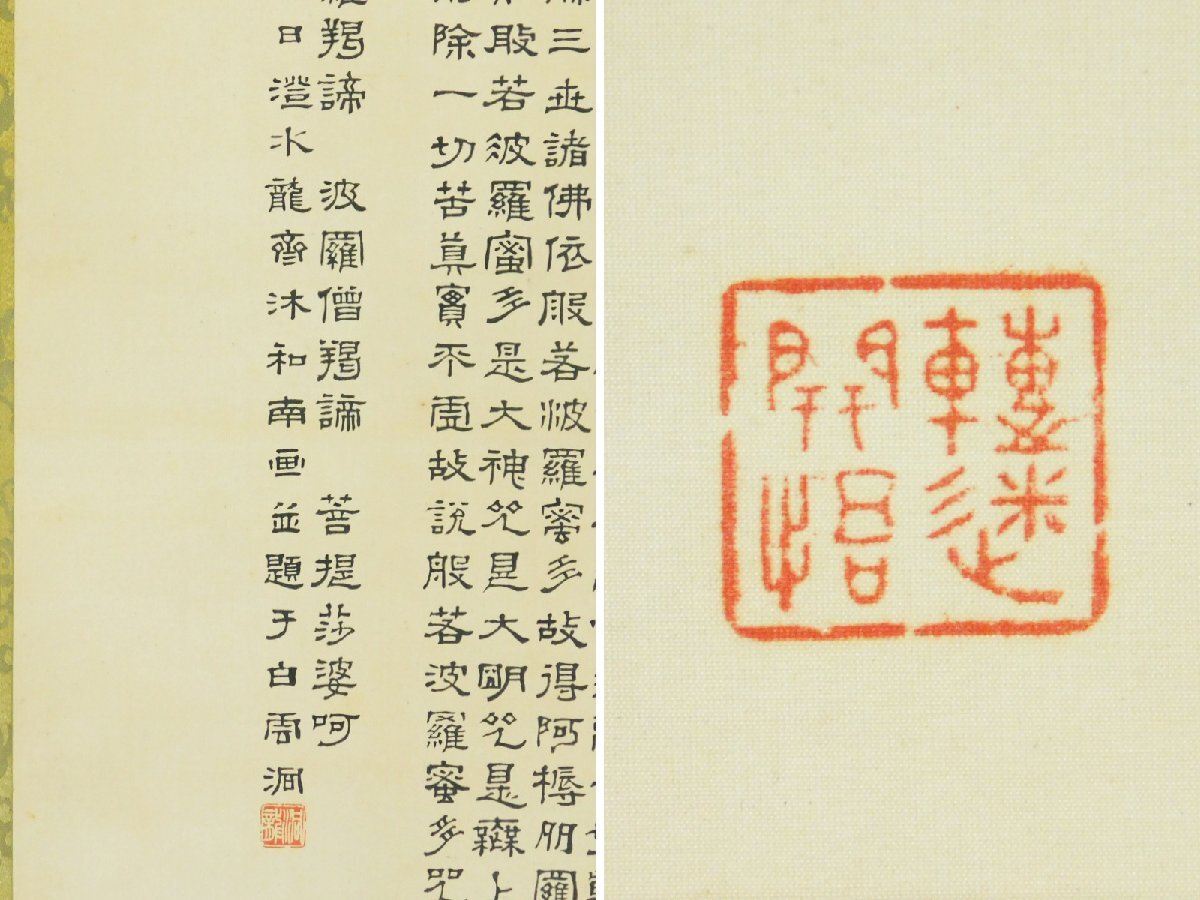 三世諸佛依般若波羅蜜多故得阿耨多羅
般若波羅蜜多是大神咒是大明咒是無上
除一切苦真實不虛故說般若波羅蜜多咒
羯諦 波羅僧羯諦 菩提莎婆呵
日澄水龍齋沐和南画並題于白雲洞
轉迷開悟